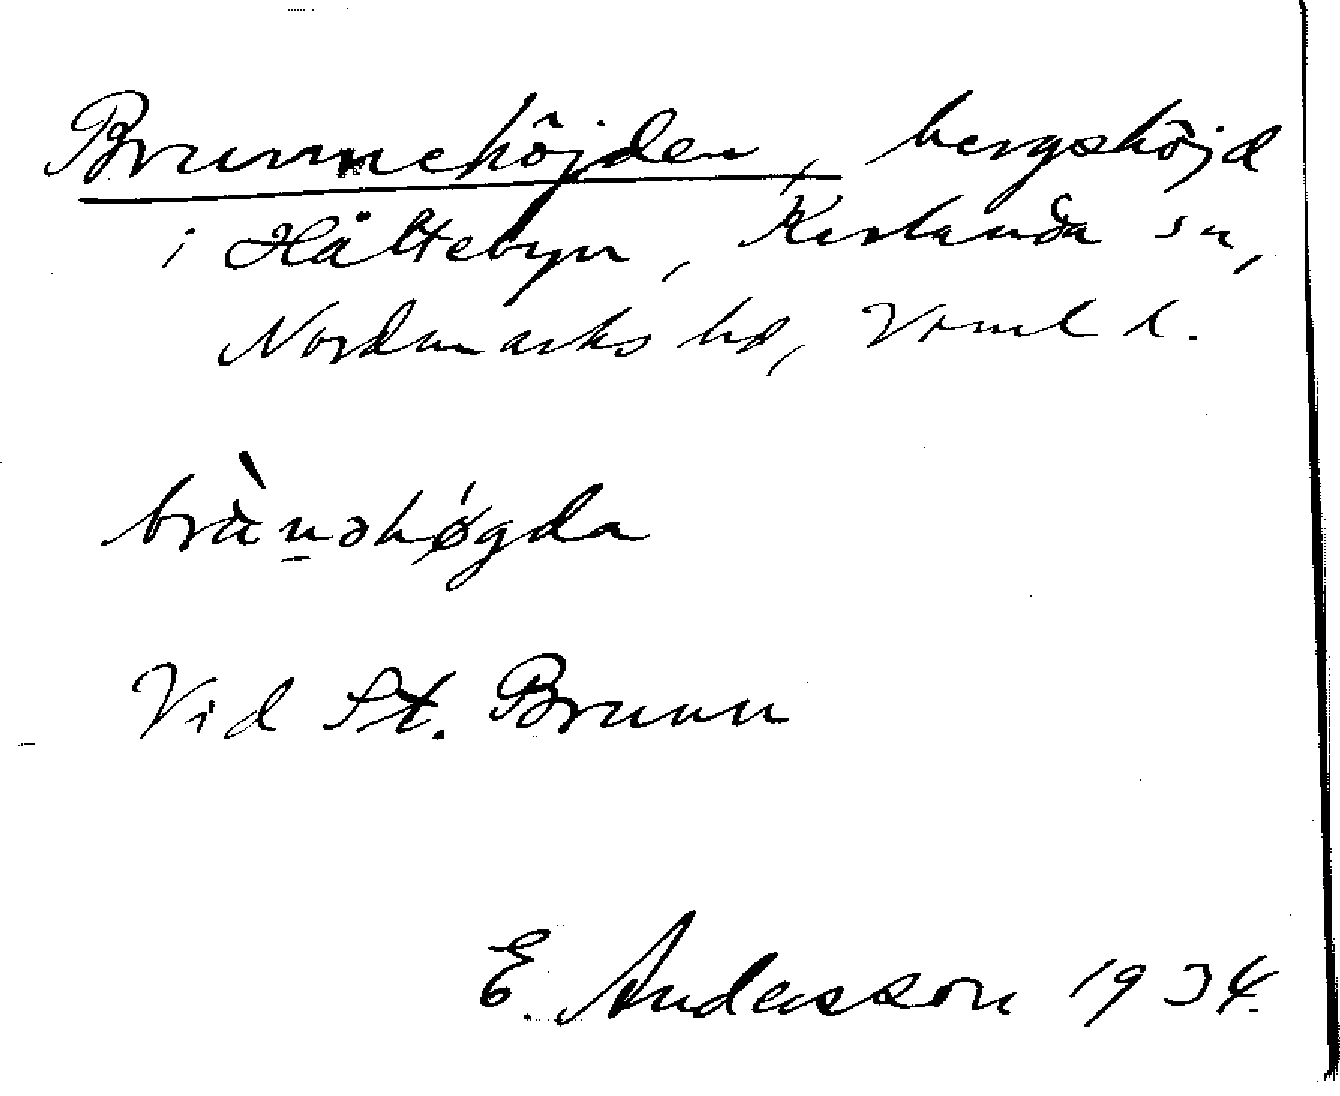 Brunnehöjden, bergshöjd
i Hältebyn, Karlanda sn,
Nordmarks hd, Vrml l.
brùn̲əhǿgda
Vid St. Brunn
E. Andersson 1934.